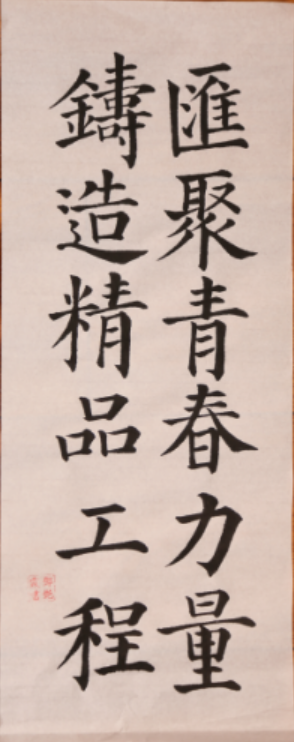 匯聚青春力量
鑄造精品工程